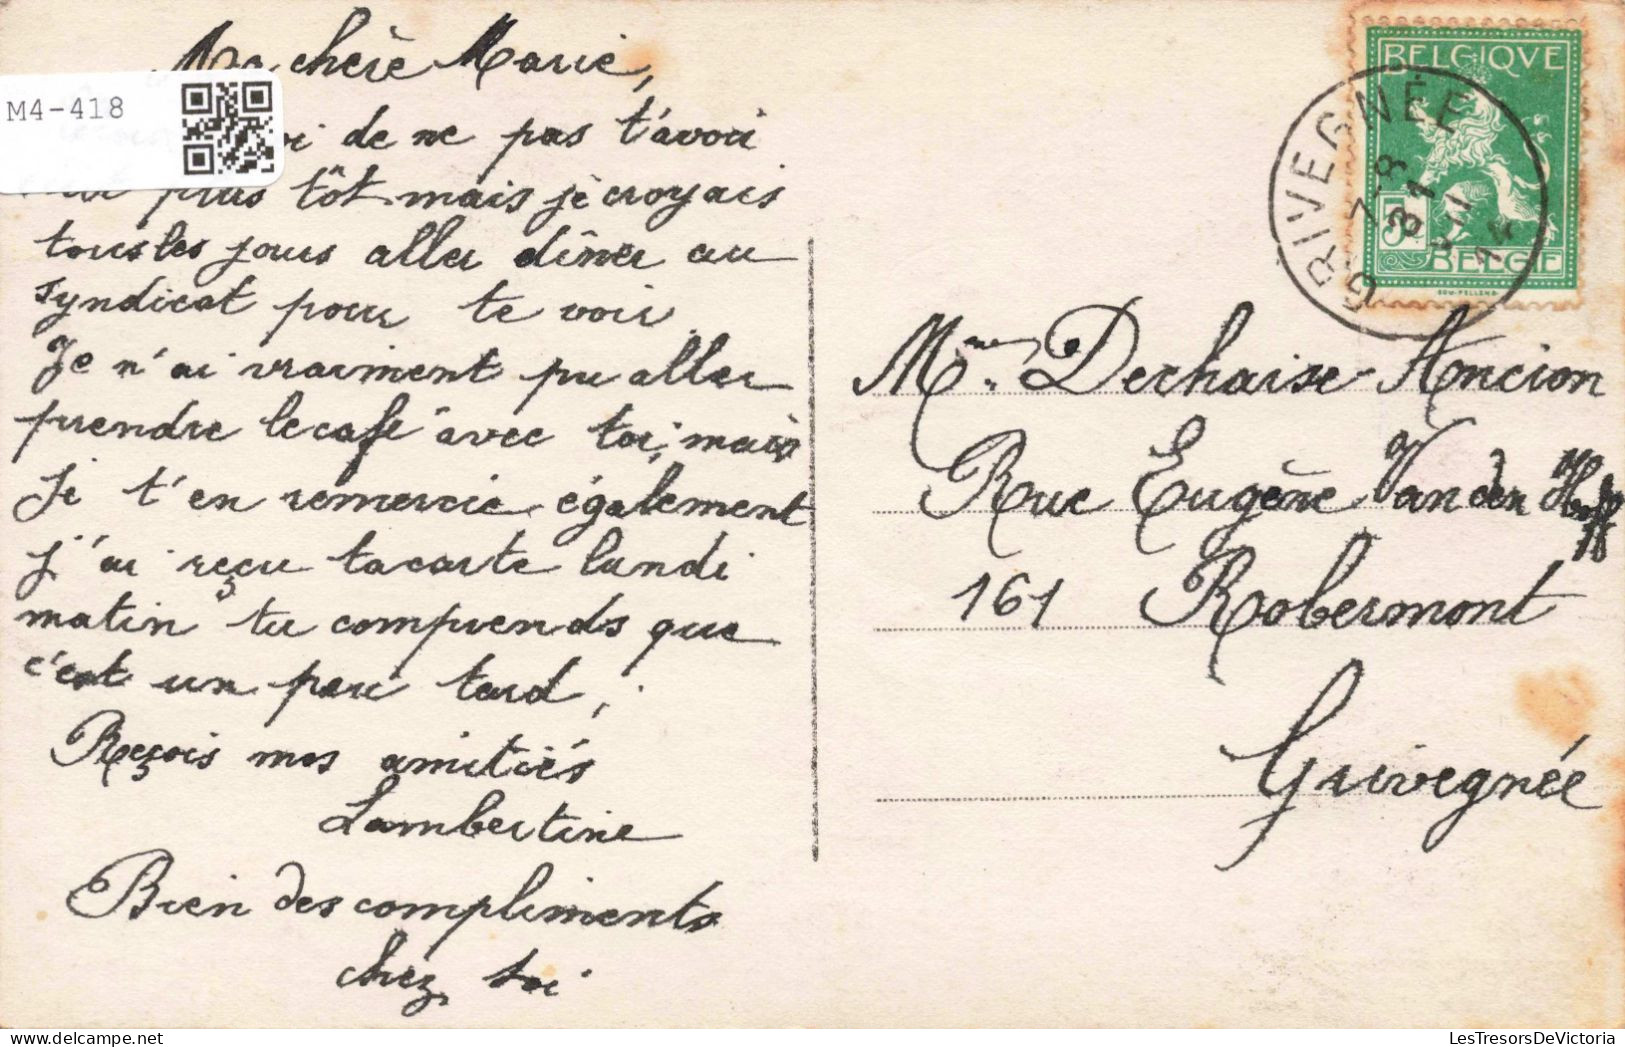 Ma chère Marie,
M4-418
de ne pas t'avoir
plus tôt mais je croyais
tous les jours aller dîner au
syndicat pour te voir
Je n'ai vraiment pu aller
prendre le café avec toi, mais
je t'en remercie également
j'ai reçu ta carte lundi
matin tu comprends que
c'est un peu tard,
Reçois mes amitiés
Lambertine
Bien des compliments
chez toi
BELGIQVE
5c
BELGIË
GRIVEGNÉE
7-8
31
VII
14
Mme Dechaise-Ancion
Rue Eugène Van den Hoff
161 Robermont
Grivegnée
LesTresorsDeVictoria